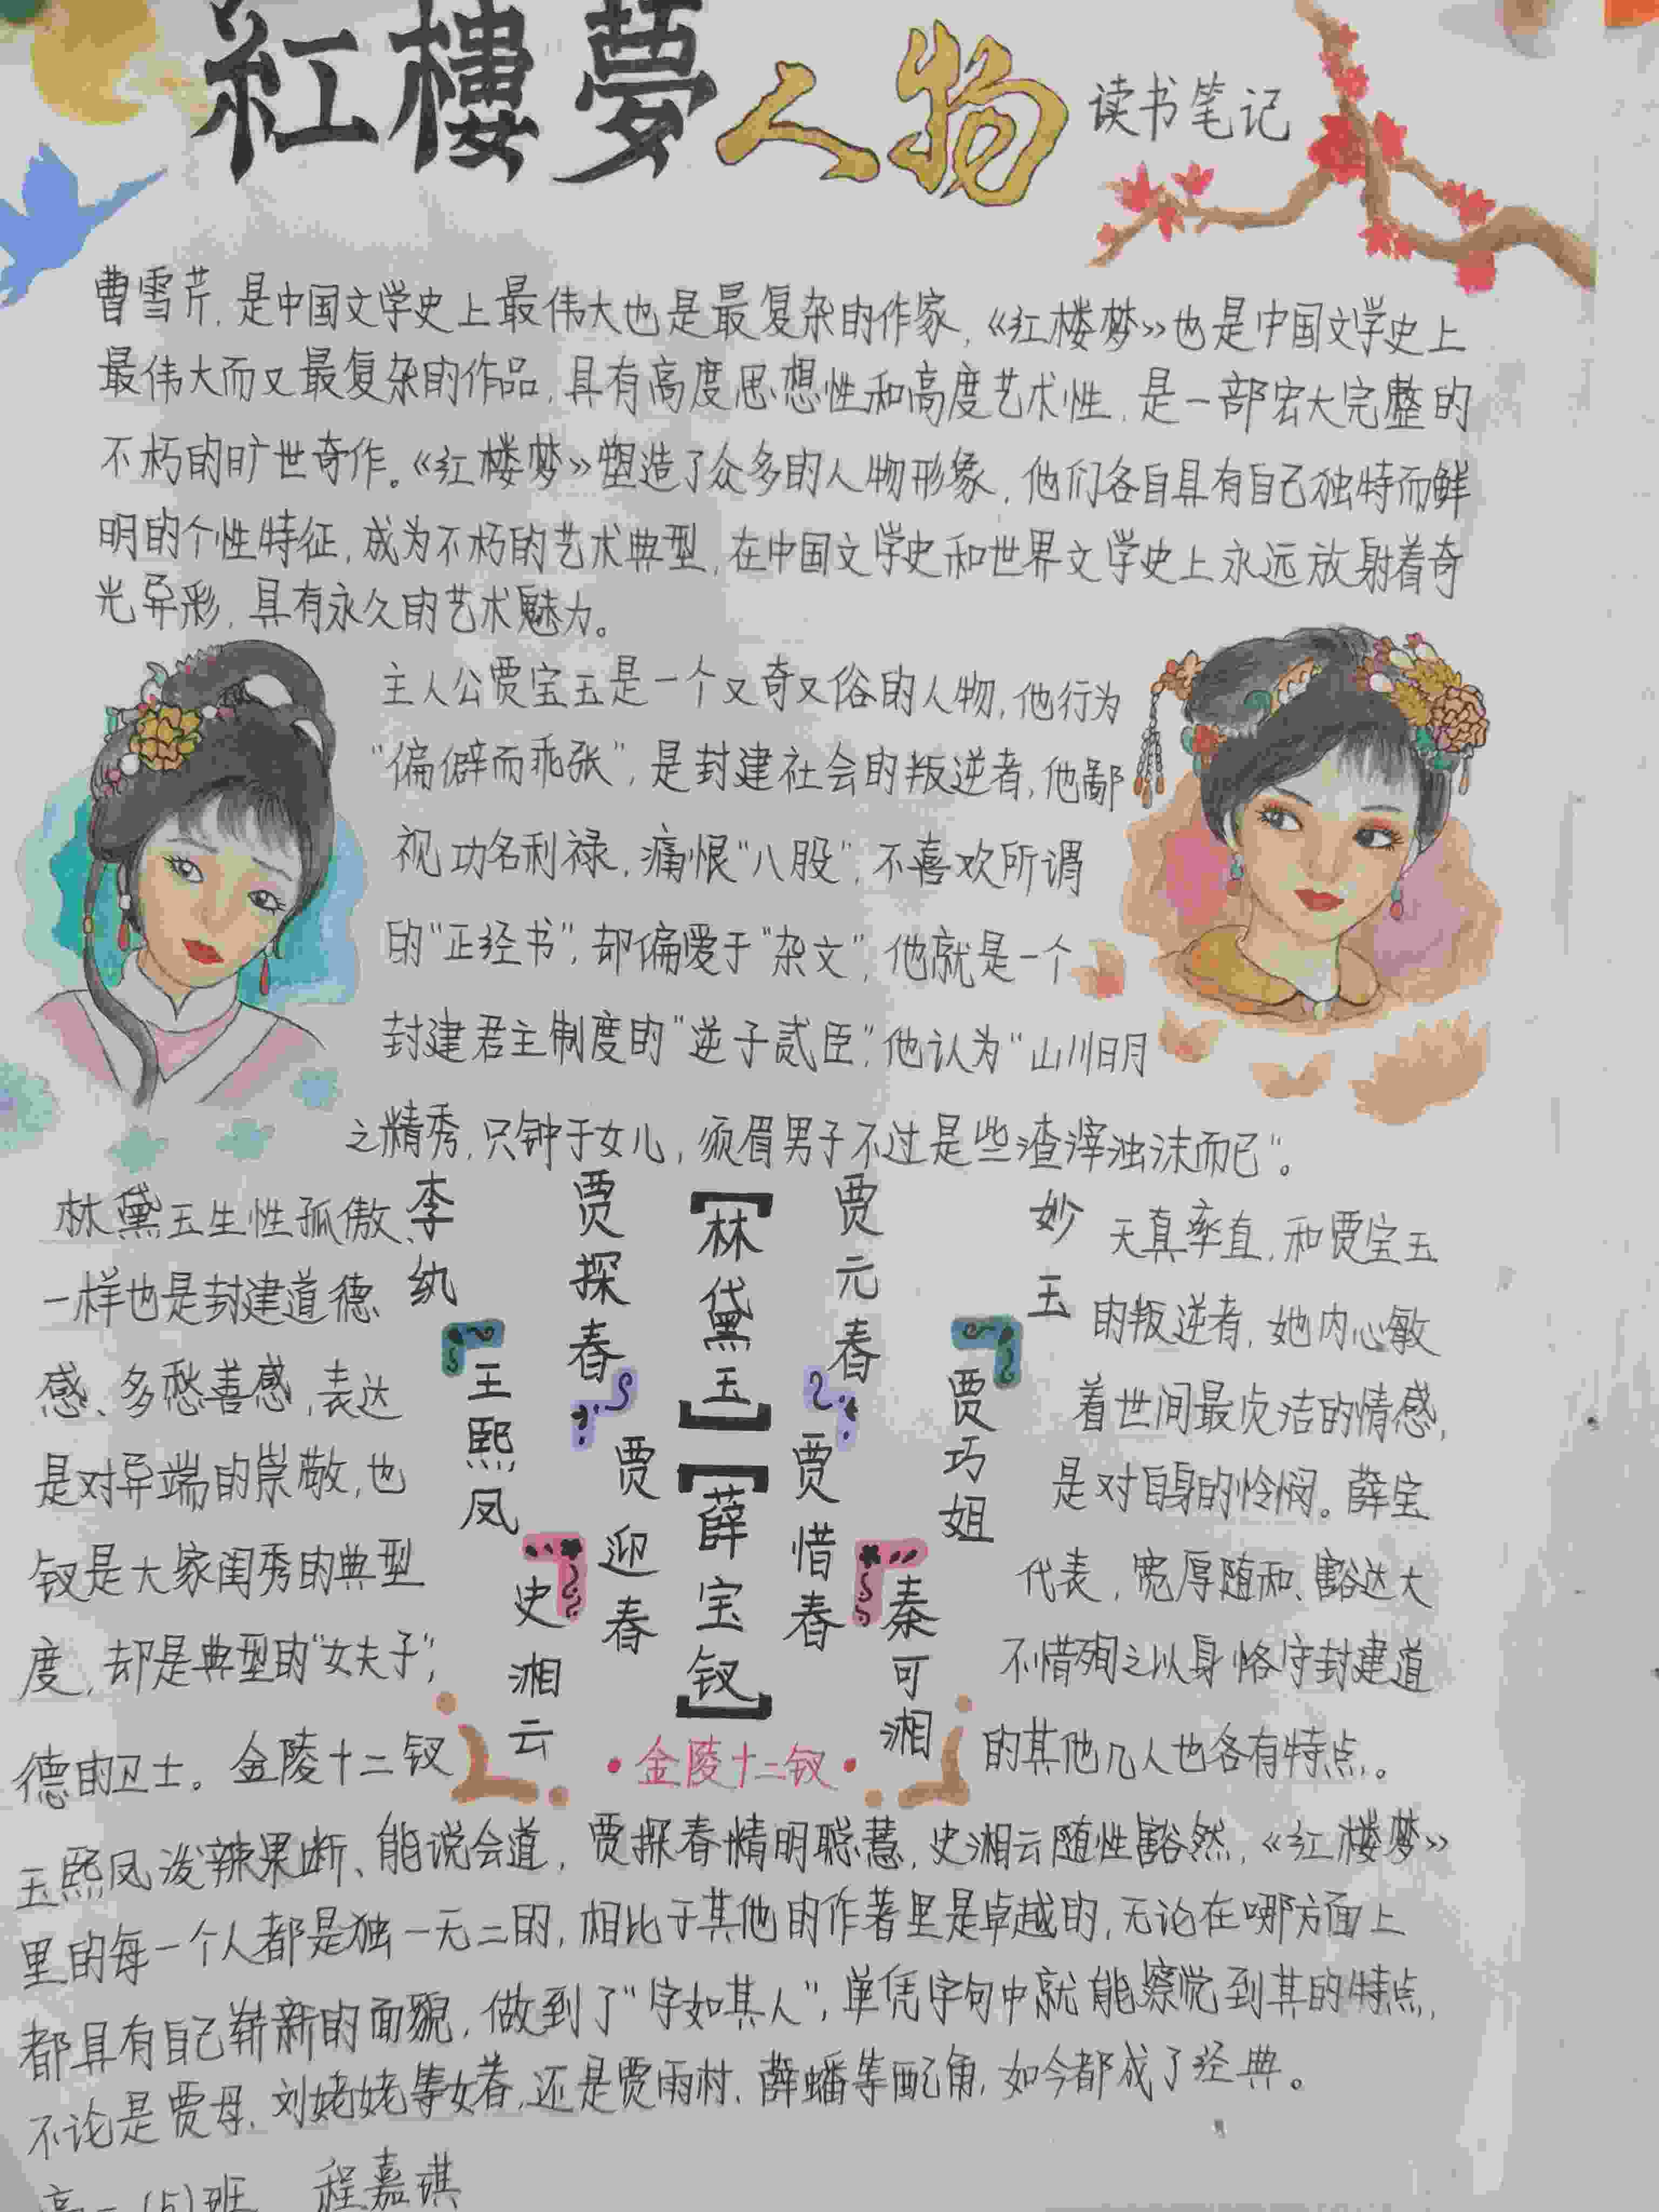 紅樓夢人物 读书笔记
曹雪芹,是中国文学史上最伟大也是最复杂的作家,《红楼梦》也是中国文学史上
最伟大而又最复杂的作品,具有高度思想性和高度艺术性,是一部宏大完整的
不朽的旷世奇作。《红楼梦》塑造了众多的人物形象,他们各自具有自己独特而鲜
明的个性特征,成为不朽的艺术典型,在中国文学史和世界文学史上永远放射着奇
光异彩,具有永久的艺术魅力。
主人公贾宝玉是一个又奇又俗的人物,他行为
“偏僻而乖张”,是封建社会的叛逆者,他鄙
视功名利禄,痛恨“八股”,不喜欢所谓
的“正经书”,却偏爱于“杂文”,他就是一个
封建君主制度的“逆子贰臣”,他认为“山川日月
之精秀,只钟于女儿,须眉男子不过是些渣滓浊沫而已”。
林黛玉生性孤傲、天真率直,和贾宝玉
一样也是封建道德的叛逆者,她内心敏
感、多愁善感,表达着世间最贞洁的情感,
是对异端的崇敬,也是对自身的怜悯。薛宝
钗是大家闺秀的典型代表,宽厚随和、豁达大
度,却是典型的“女夫子”,不惜殉之以身恪守封建道
德的卫士。金陵十二钗的其他几人也各有特点。
李纨
王熙凤
史湘云
贾探春
贾迎春
【林黛玉】
【薛宝钗】
贾元春
贾惜春
妙玉
贾巧姐
秦可湘
·金陵十二钗·
王熙凤泼辣果断、能说会道,贾探春精明聪慧,史湘云随性豁然,《红楼梦》
里的每一个人都是独一无二的,相比于其他的作著里是卓越的,无论在哪方面上
都具有自己崭新的面貌,做到了“字如其人”,单凭字句中就能察觉到其的特点,
不论是贾母、刘姥姥等女者,还是贾雨村、薛蟠等配角,如今都成了经典。
高一(5)班 程嘉琪